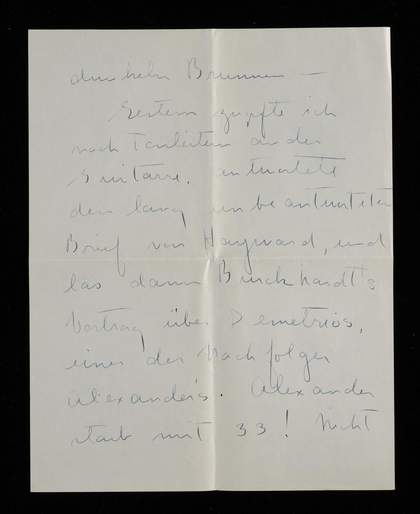 dunkeln Brunnen —
Gestern zupfte ich
noch Tonleitern an der
Guitarre, antwortete
den lang unbeantworteten
Brief von Hayward, und
las dann Burckhardt's
Vortrag über Demetrios,
einer der Nachfolger
Alexander's. Alexander
starb mit 33! Nicht